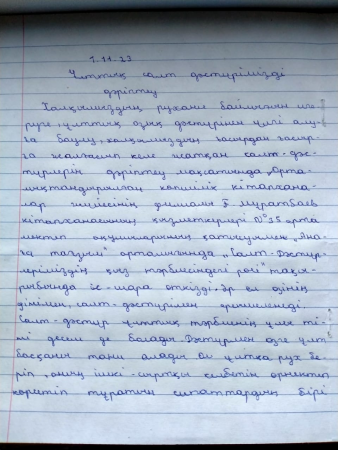 1.11.23
Ұлттық салт дәстүрімізді
дәріптеу
Халқымыздың рухани байлығын иге
руге, ұлттық озық дәстүрін үлгі алу-
ға баулу, халқымыздың ғасырдан ғасыр-
ға жалғасып келе жатқан салт-дәс-
түрлерін дәріптеу мақсатында, Орта-
лықтандырылған көпшілік кітапхана-
лар жүйесінің филиалы Ғ Мұратбаев
кітапханасының қызметкерлері №35 орта
мектеп оқушыларының қатысуымен „Ана-
ға тағзым" орталығында „Салт-Дәстүр-
леріміздің қыз тәрбиесіндегі рөлі" тақы-
рыбында іс-шара өткізді. Әр ел өзінің
дінімен, салт-дәстүрімен ерекшеленеді.
Салт-дәстүр ұлттық тәрбиенің үлгі ті-
мі десем де болады. Дәстүрмен өзге ұлт
басқаны тани алады. Ол ұлтқа рух бе-
ріп, оның ішкі-сыртқы келбетін өрнектеп
көрсетіп тұратын сипаттардың бірі